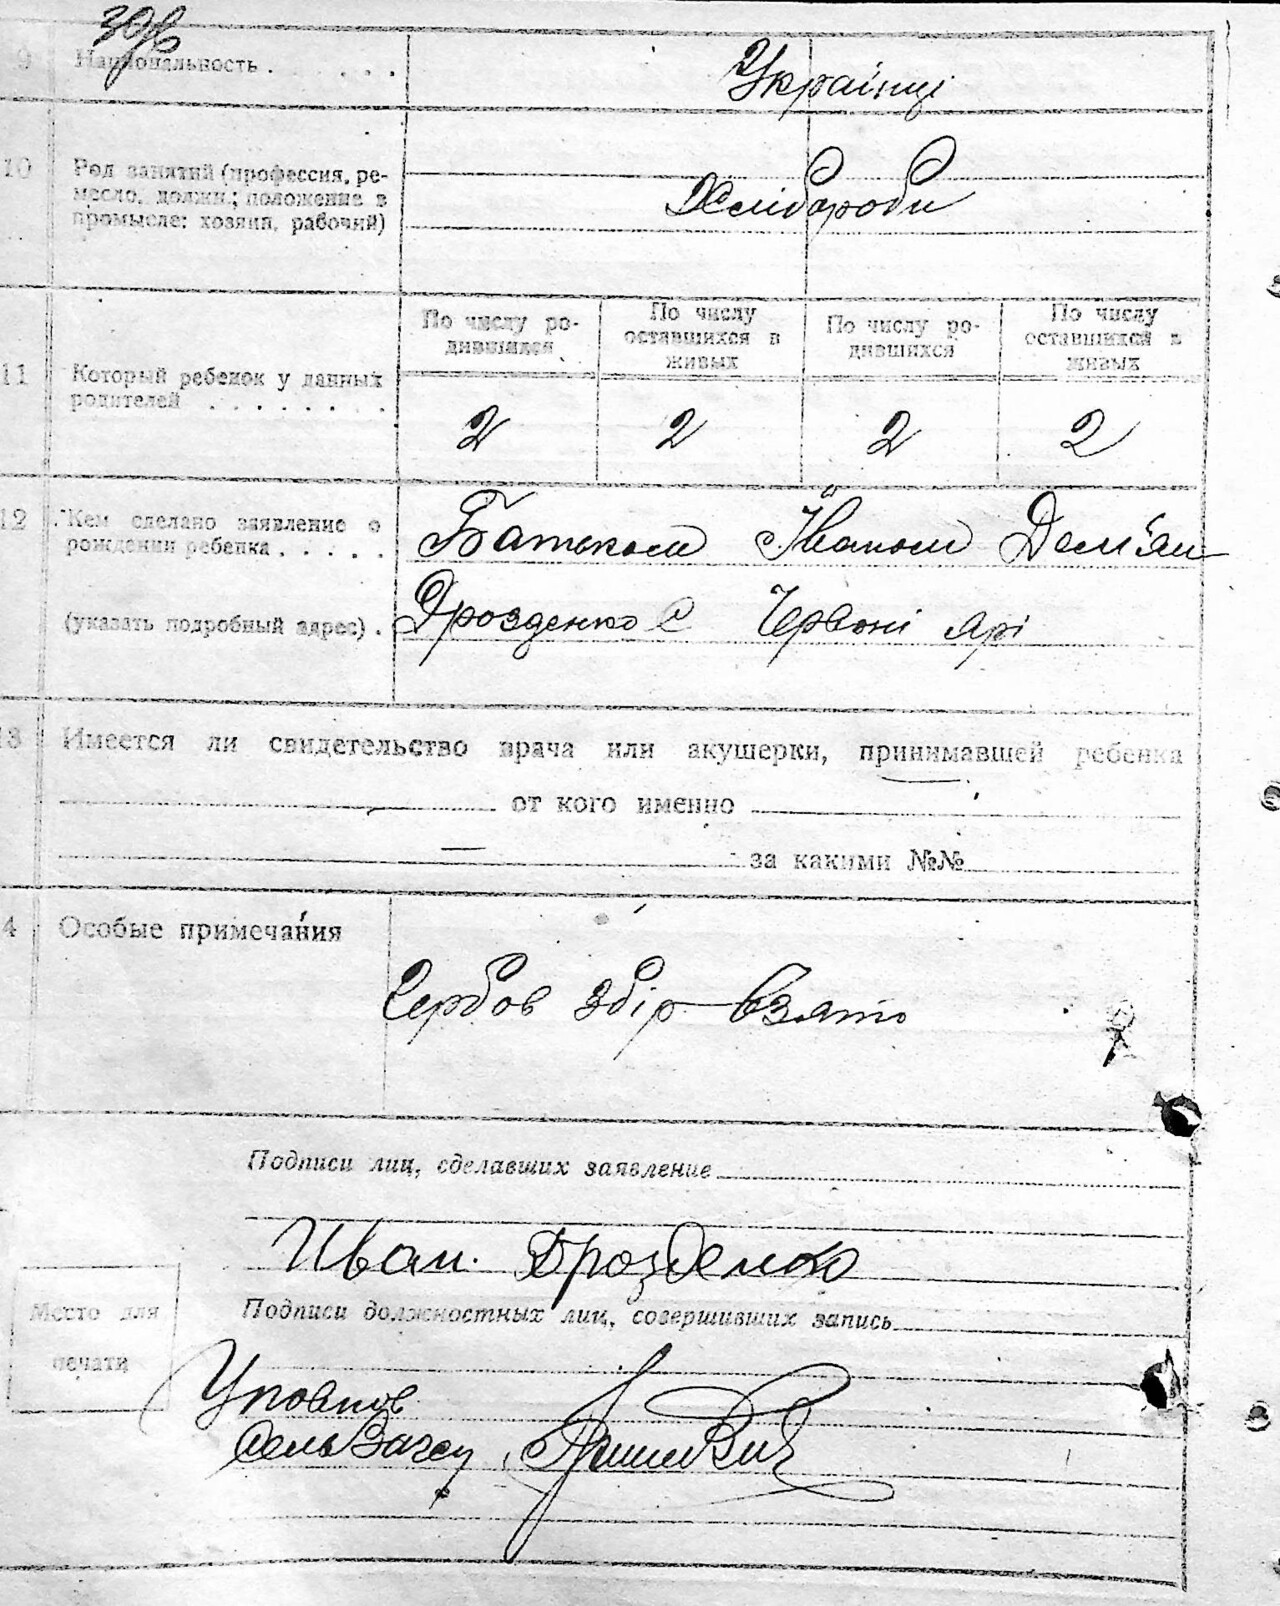 30б
9 Национальность . . . . . .
Українці
10 Род занятий (профессия, ре-
месло, должн.; положение в
промысле: хозяин, рабочий)
Хлібороби
По числу ро-
дившихся
По числу
оставшихся в
живых
По числу ро-
дившихся
По числу
оставшихся в
живых
11 Который ребенок у данных
родителей . . . . . . . .
2 2 2 2
12 Кем сделано заявление о
рождении ребенка . . . . .
Батьком Іваном Дем'ян
(указать подробный адрес) .
Дрозденко С Червоні ярі
13 Имеется ли свидетельство врача или акушерки, принимавшей ребенка
от кого именно
за какими №№
4 Особые примечания
Гербов збір взято
Подписи лиц, сделавших заявление
Иван. Дрозденко
Место для
печати
Подписи должностных лиц, совершивших запись
Уповнов